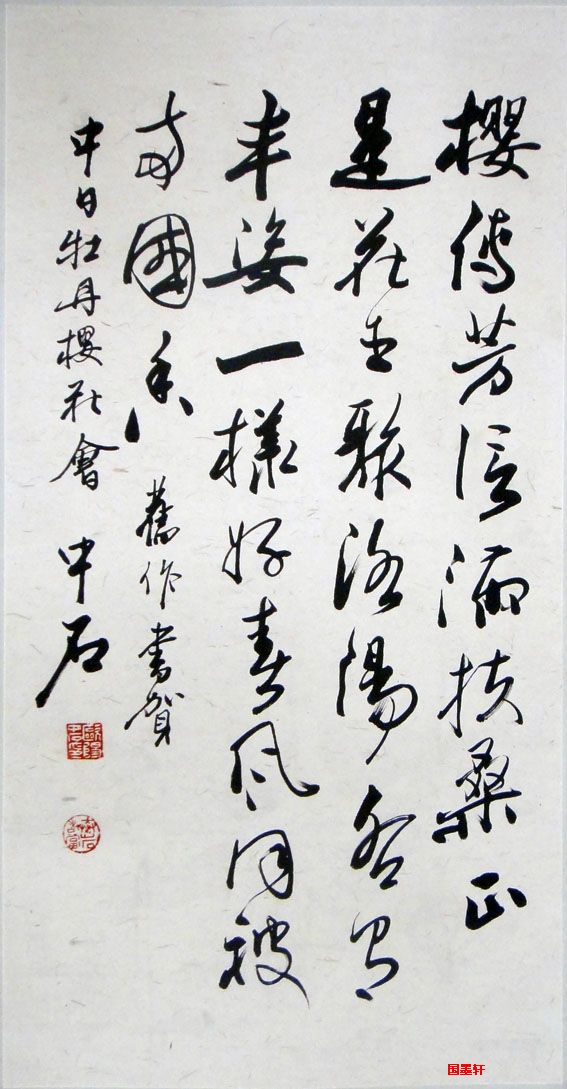 櫻傳芳信滿扶桑正
是花王聚洛陽各有
丰姿一樣好春風同被
兩國香 舊作書賀
中日牡丹櫻花會 中石
国墨轩